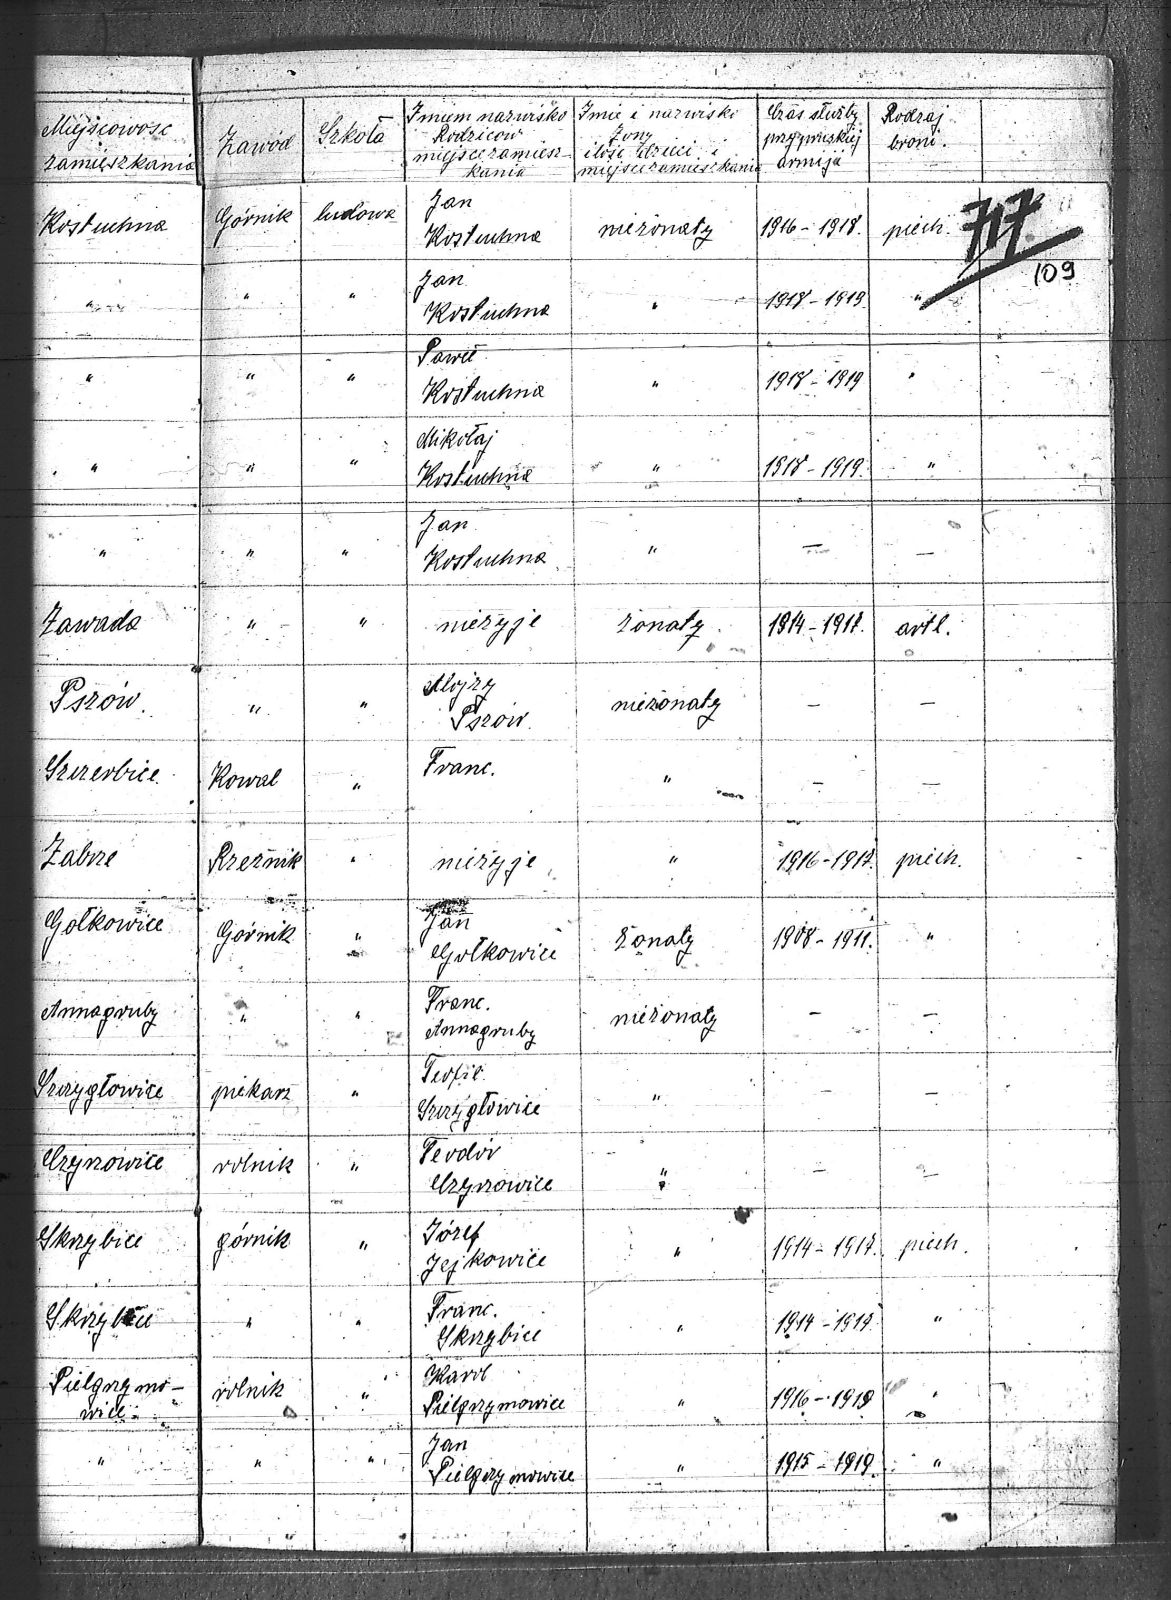 Miejscowość zamieszkania Zawód Szkoła Imiem nazwisko Rodziców miejsce zamieszkania Imie i nazwisko żony ilość dzieci i miejsce zamieszkania Czas służby przy pruskiej armija Rodzaj broni.
717
109
Kostuchna Górnik ludowa Jan Kostuchna nieżonaty 1916 – 1918. piech.
" " " Jan Kostuchna " 1918 – 1919 "
" " " Paweł Kostuchna " 1918 – 1919 "
" " " Mikołaj Kostuchna " 1918 – 1919. "
" " " Jan Kostuchna " — —
Zawada " " nieżyje żonaty 1914 – 1917. artl.
Pszów. " " Alojzy Pszów. nieżonaty — —
Szczerbice Kowal " Franc. " — —
Zabrze Rzeźnik " nieżyje " 1916 – 1917. piech.
Gołkowice Górnik " Jan Gołkowice żonaty 1908 – 1911. "
Annagruby " " Franc. Annagruby nieżonaty — —
Szczygłowice piekarz " Teofil Szczygłowice " — —
Czyżowice rolnik " Teodór Czyżowice " — —
Skrzybice górnik " Józef Jejkowice " 1914 – 1917. piech.
Skrzybice " " Franc. Skrzybice " 1914 – 1919 "
Pielgrzymo–wice rolnik " Karol Pielgrzymowice " 1916 – 1919 "
" " " Jan Pielgrzymowice " 1915 – 1919. "